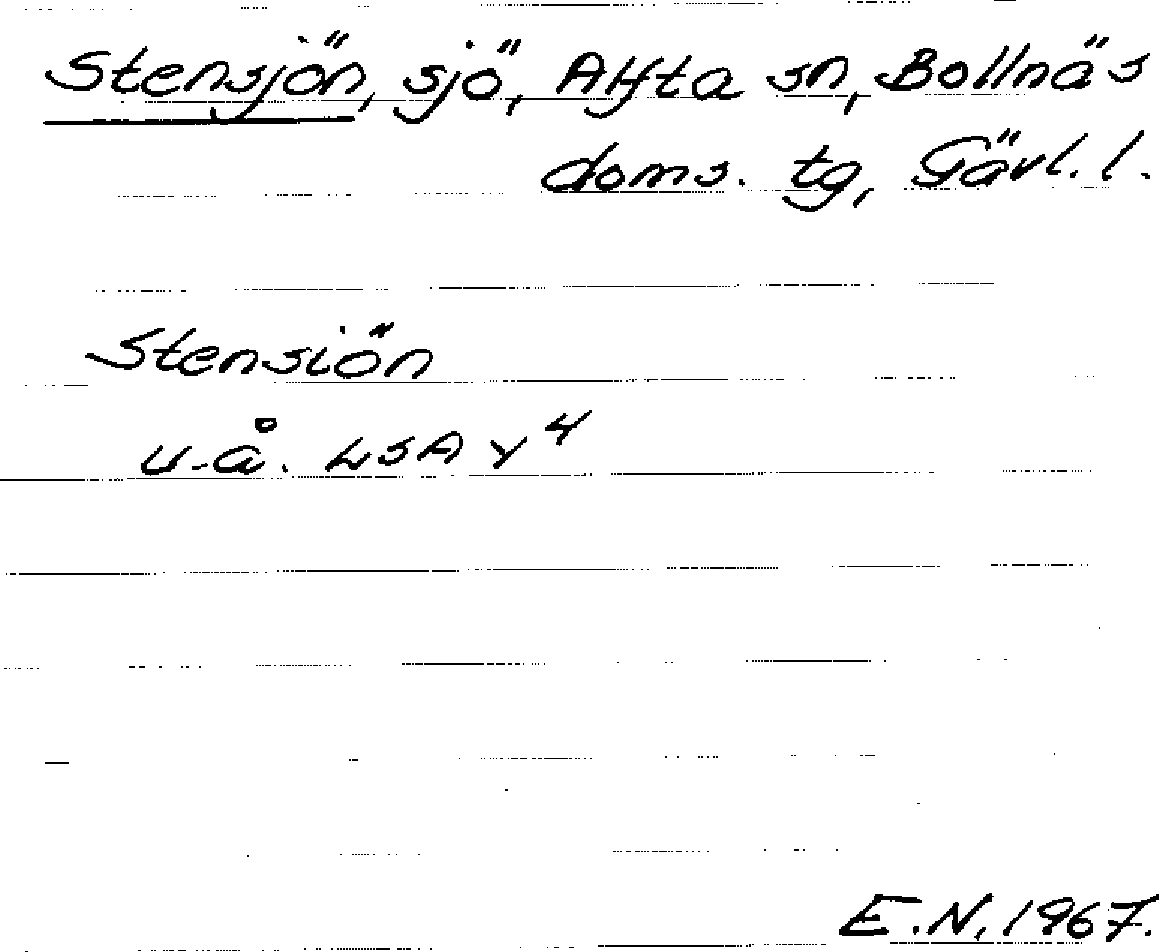 Stensjön, sjö, Alfta sn, Bollnäs
doms. tg, Gävl. l.
Stensiön
u.å. LSA Y 4
E.N. 1967.